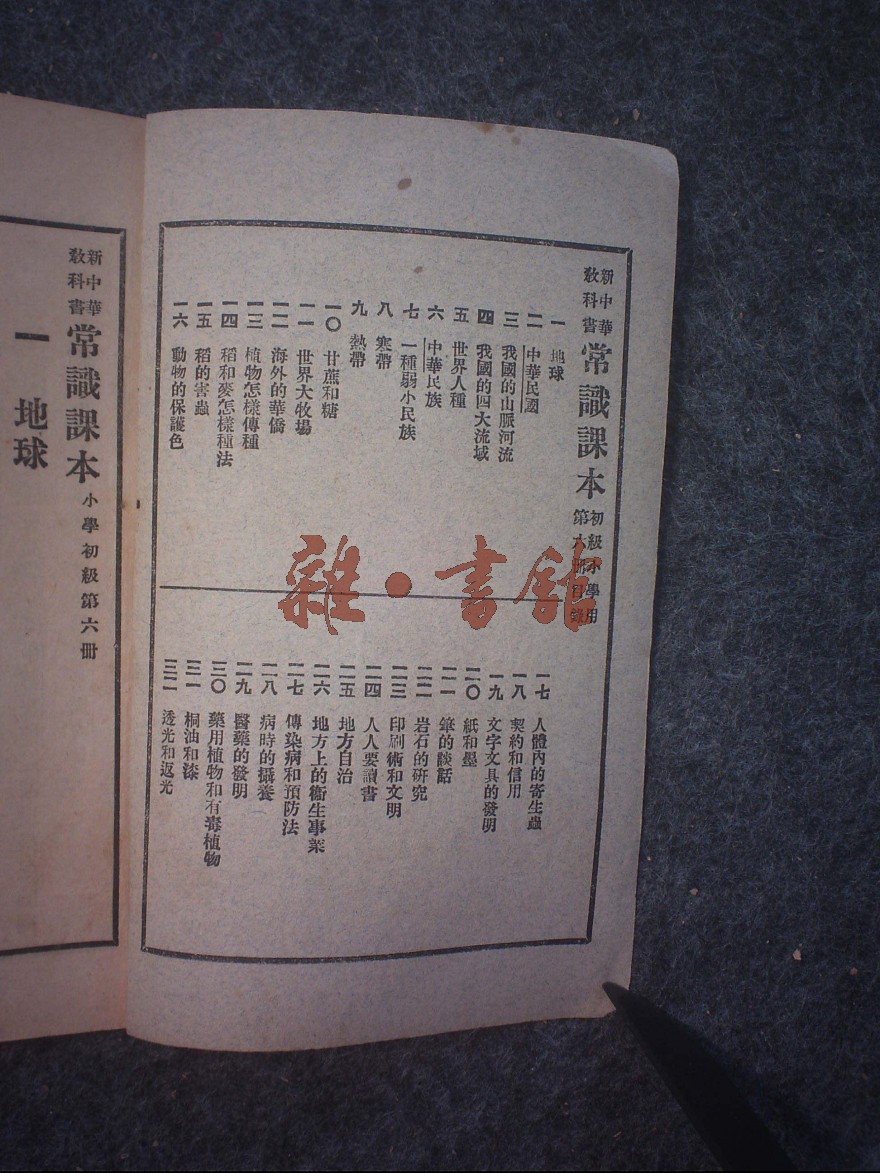 新中華
教科書
常識課本
初級小學用
第六冊目錄
一 地球
二 中華民國
三 我國的山脈河流
四 我國的四大流域
五 世界人種
六 中華民族
七 一種弱小民族
八 寒帶
九 熱帶
一〇 甘蔗和糖
一一 世界大牧場
一二 海外的華僑
一三 植物怎樣傳種
一四 稻和麥怎樣種法
一五 稻的害蟲
一六 動物的保護色
一七 人體內的寄生蟲
一八 契約和信用
一九 文字文具的發明
二〇 紙和墨
二一 筆的談話
二二 岩石的研究
二三 印刷術和文明
二四 人人要讀書
二五 地方自治
二六 地方上的衞生事業
二七 傳染病和預防法
二八 病時的攝養
二九 醫藥的發明
三〇 藥用植物和有毒植物
三一 桐油和漆
三二 透光和返光
雜·書館
新中華
教科書
常識課本
小學初級第六冊
一 地球